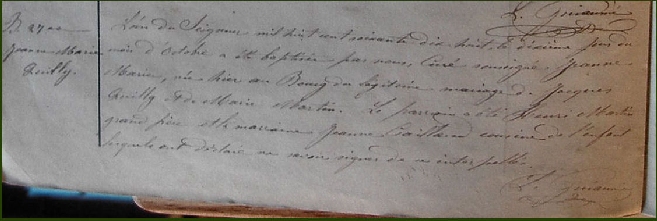 B 27
Jeanne Marie
Quilly.
L'an du Seigneur mil huit cent soixante dix huit le dixième jour du
mois d'Octobre a été baptisée par nous, Curé soussigné, Jeanne
Marie, née hier au Bourg du légitime mariage de Jacques
Quilly & de Marie Martin. Le parrain a été Henri Martin
grand père et la marraine Jeanne cousine de l'enfant
lesquels ont déclaré ne savoir signer de ce interpellés.